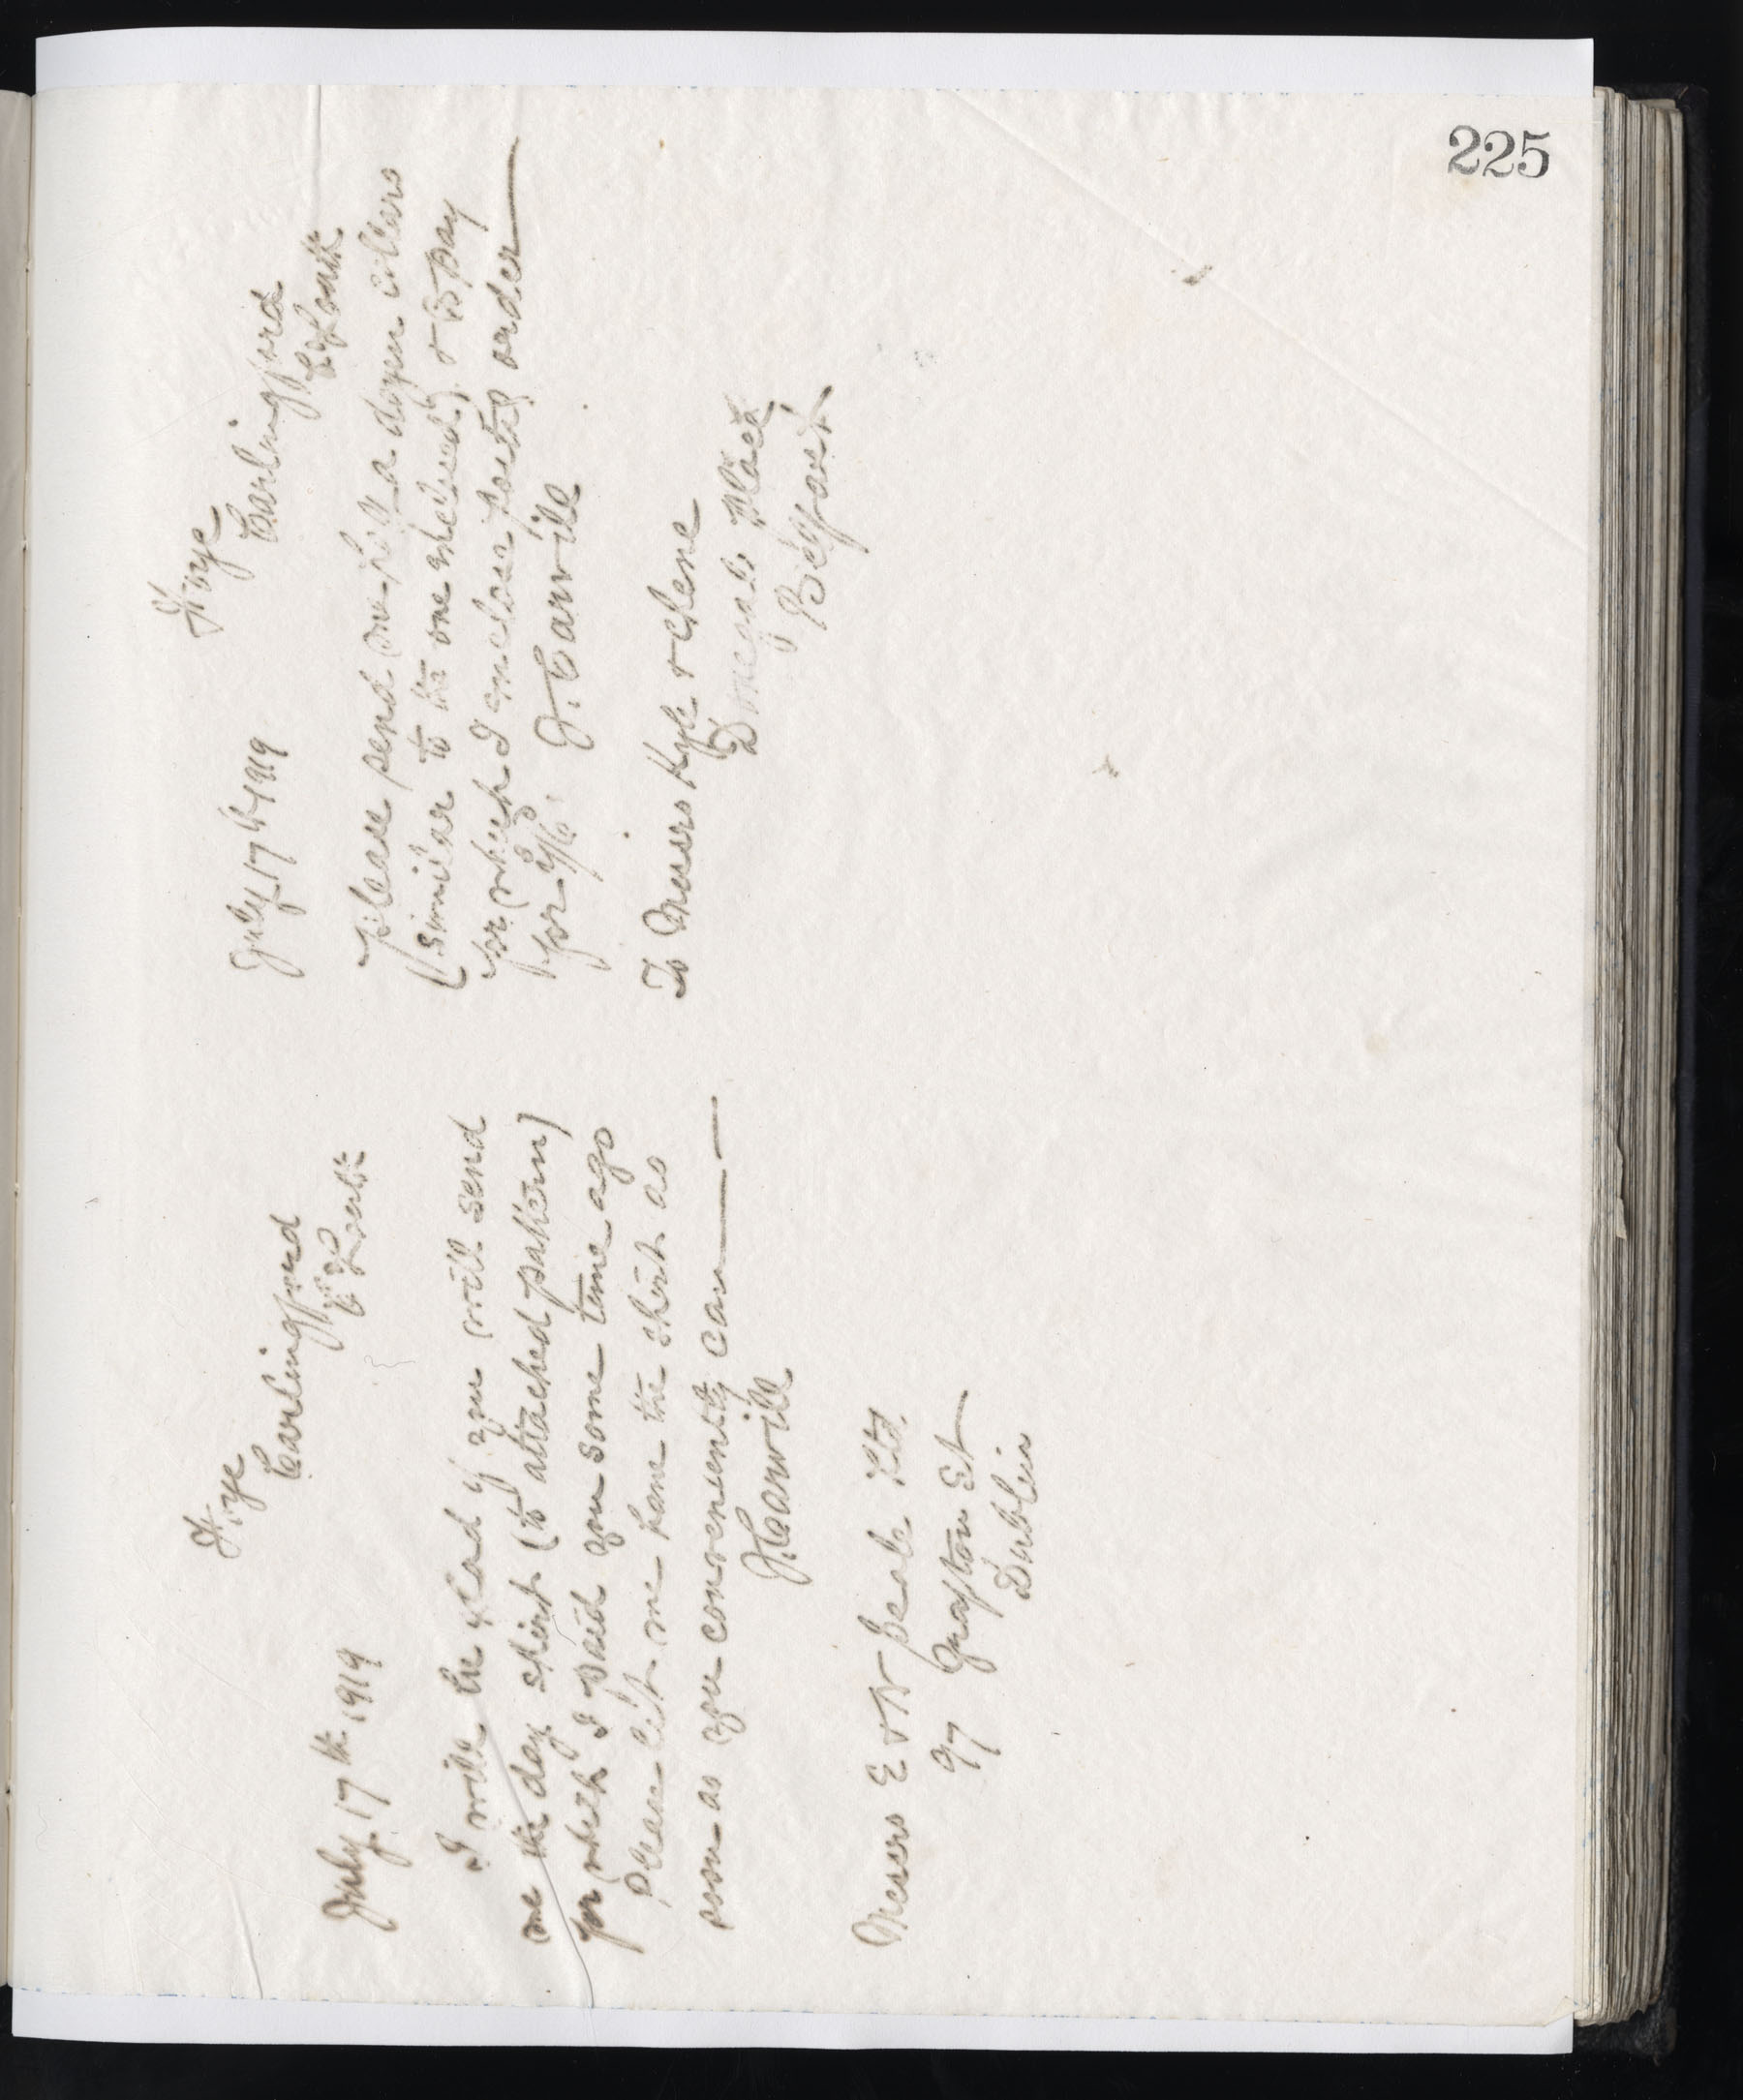 225
Fioye
Carlingford
Co Louth
July 17th 1919
I will be glad if you will send
me the day shirt (to attached pattern)
for which I paid you some time ago
Please let me have the shirt as
soon as you conveniently can
J. Carvill
Messrs E & W Seale Ltd.
97 Grafton St
Dublin
Carlingford
Co Louth
July 17th 1919
Please send me half a dozen collars
(similar to the one enclosed) &
for which I enclose postal order
for
J. Carvill
To Messrs Hyde &
Donegall Place
Belfast